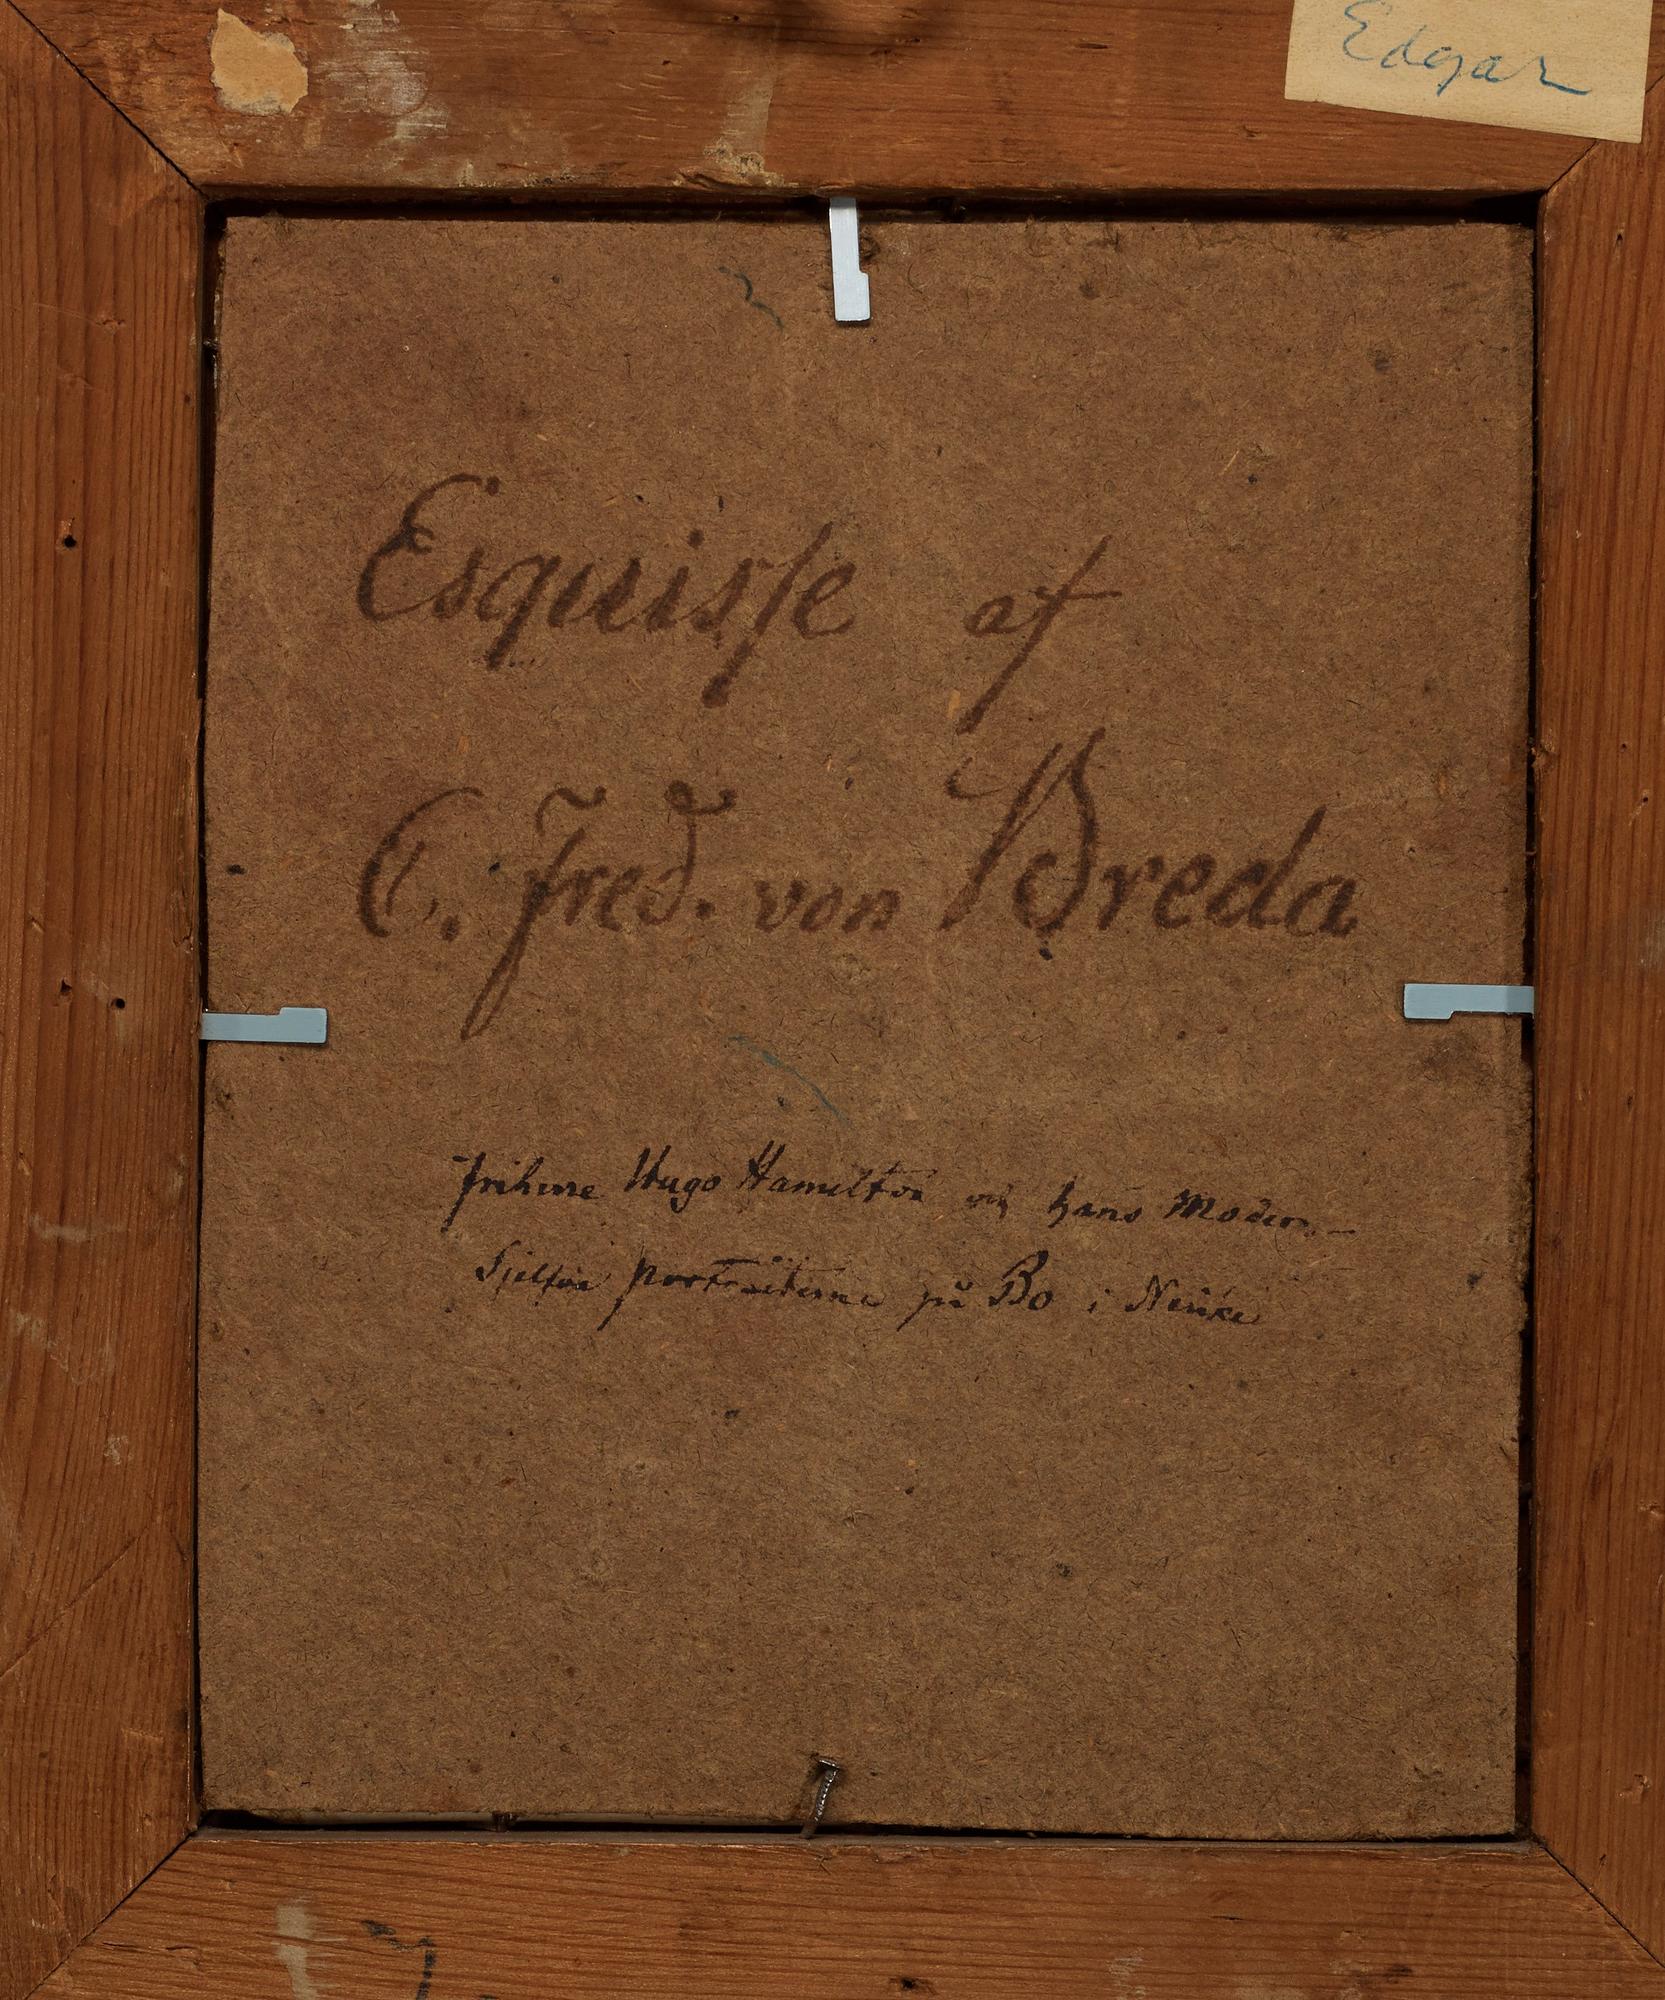 Edgar
Esquisse af
C. Fred. von Breda
friherre Hugo Hamilton och hans Moder. —
Sjelfva porträtterna på Bo i Nerike